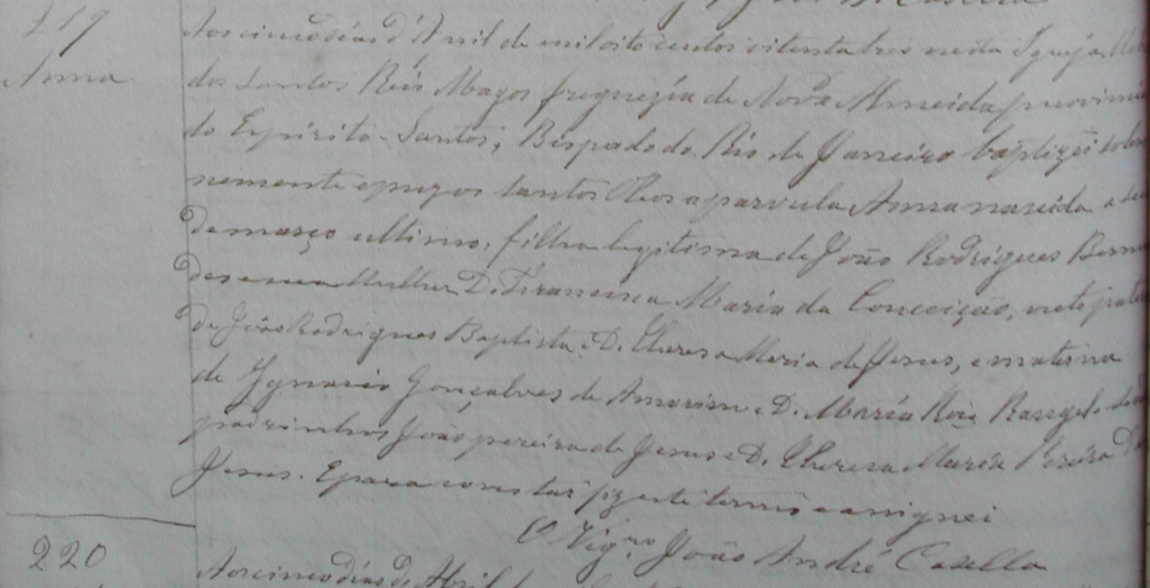 219
Anna
Aos cinco dias d'Abril de mil oito centos oitenta tres nesta Igreja
dos Santos Reis Magos freguezia de Nova Almeida provincia
do Espirito-Santo, Bispado do Rio de Janeiro baptizei solem
nemente e puz os santos Oleos a parvula Anna nascida a
de março ultimo, filha legitima de João Rodrigues
des e sua Mulher D. Francisca Maria da Conceição, neta
de João Rodrigues Baptista e D. Theresa Maria de Jesus, e materna
de Ignacio Gonçalves de Amorim e D. Maria Rangel
padrinhos João pereira de Jesus e D. Theresa Maria Pereira de
Jesus. E para constar fiz este termo e assignei
O Vigro João André Casella
220
Aos cinco dias d'Abril